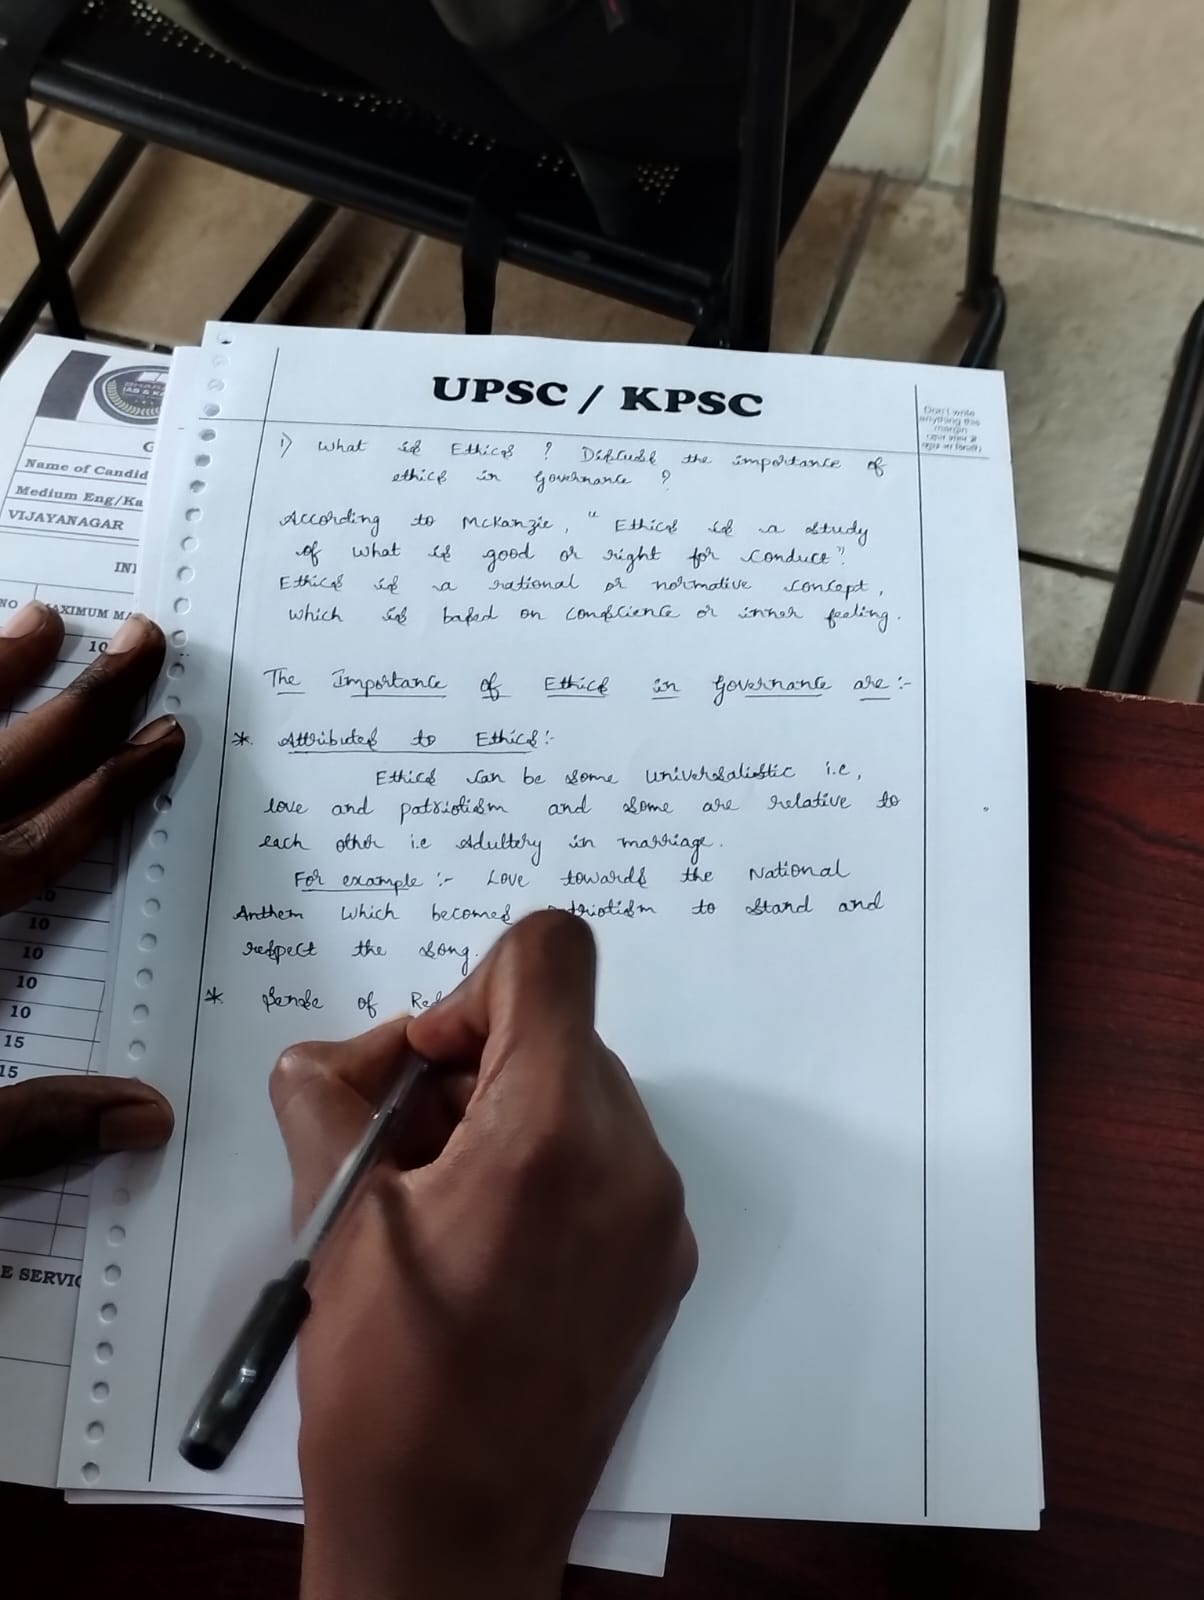 UPSC / KPSC
Don't write
anything this
margin
IAS & K
Name of Candid
Medium Eng/Ka
VIJAYANAGAR
NO
MAXIMUM MA
10
10
10
10
10
15
15
E SERVIC
1) What is Ethics ? Discuss the importance of
ethics in Governance ?
According to McKanzie, " Ethics is a study
of what is good or right for conduct".
Ethics is a rational or normative concept,
which is based on conscience or inner feeling.
The Importance of Ethics in Governance are :-
* Attributes to Ethics :-
Ethics can be some universalistic i.e,
love and patriotism and some are relative to
each other i.e Adultery in marriage.
For example :- Love towards the National
Anthem which becomes patriotism to stand and
respect the song.
* Sense of